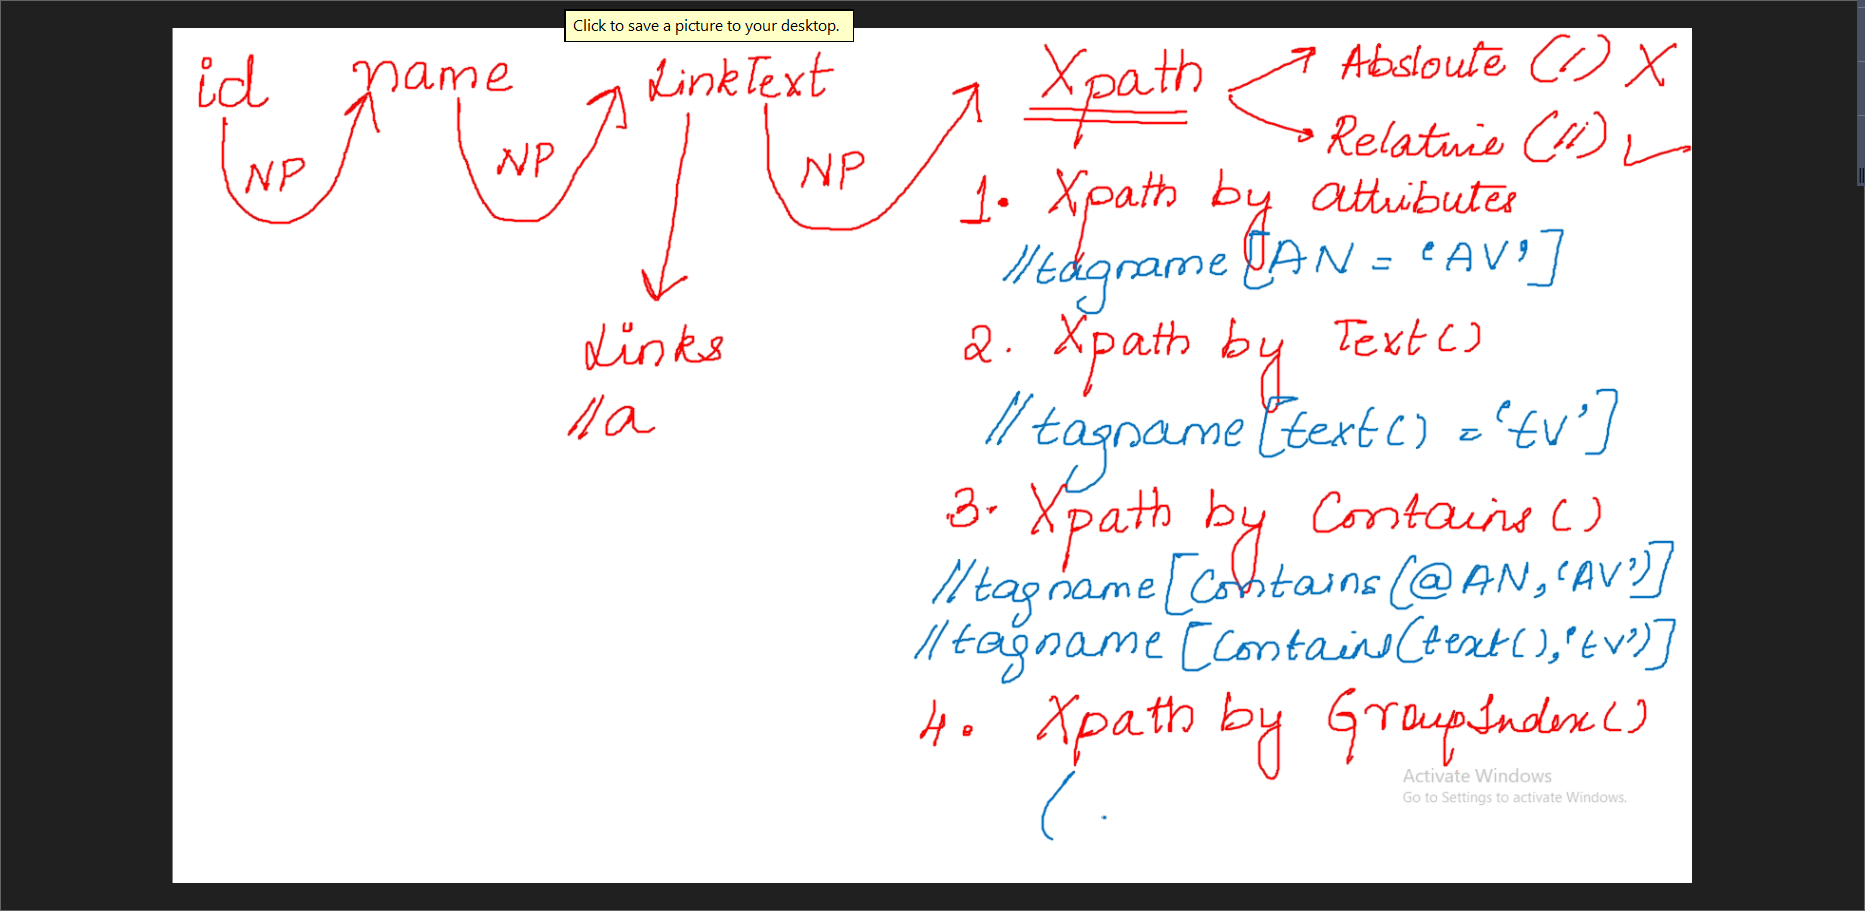 Click to save a picture to your desktop.
id name LinkText Xpath Absloute (/) X
Relative (//) ✓
NP NP NP
1. Xpath by attributes
//tagname[AN = 'AV']
Links
//a
2. Xpath by Text()
//tagname[text() = 'tv']
3. Xpath by Contains()
//tagname[Contains(@AN,'AV')]
//tagname[Contains(text(),'tv')]
4. Xpath by GroupIndex()
(.
Activate Windows
Go to Settings to activate Windows.